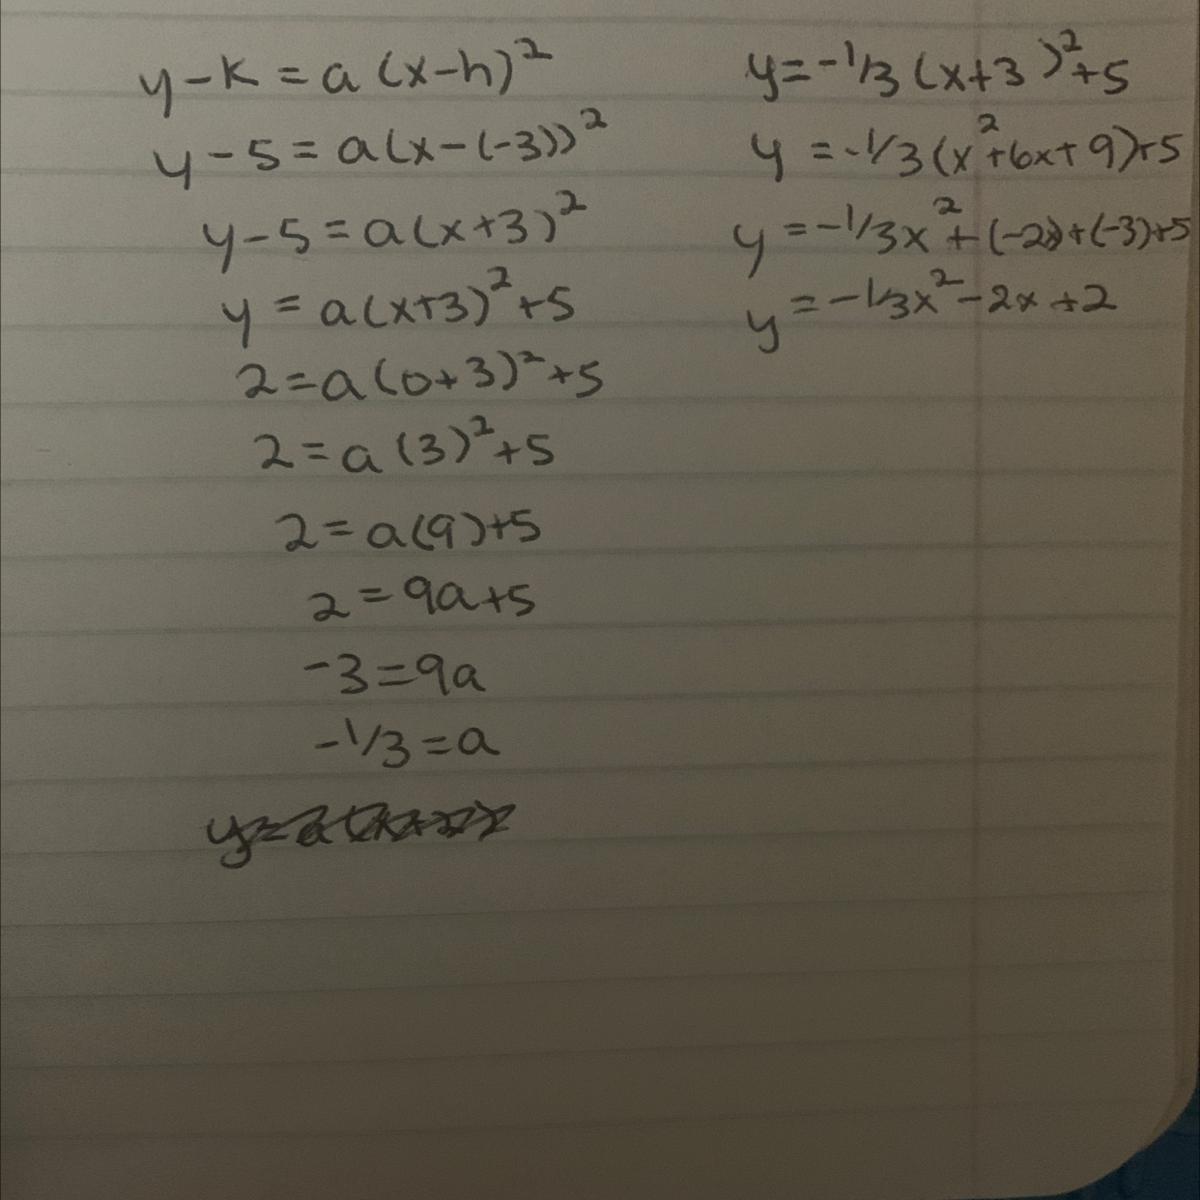 y-k=a(x-h)²
y-5=a(x-(-3))²
y-5=a(x+3)²
y=a(x+3)²+5
2=a(0+3)²+5
2=a(3)²+5
2=a(9)+5
2=9a+5
-3=9a
-1/3=a
y=-1/3(x+3)²+5
y=-1/3(x²+6x+9)+5
y=-1/3x²+(-2x)+(-3)+5
y=-1/3x²-2x+2